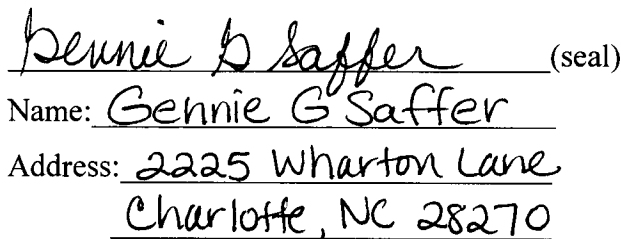 Gennie G Saffer (seal)
Name: Gennie G Saffer
Address: 2225 Wharton Lane
Charlotte, NC 28270